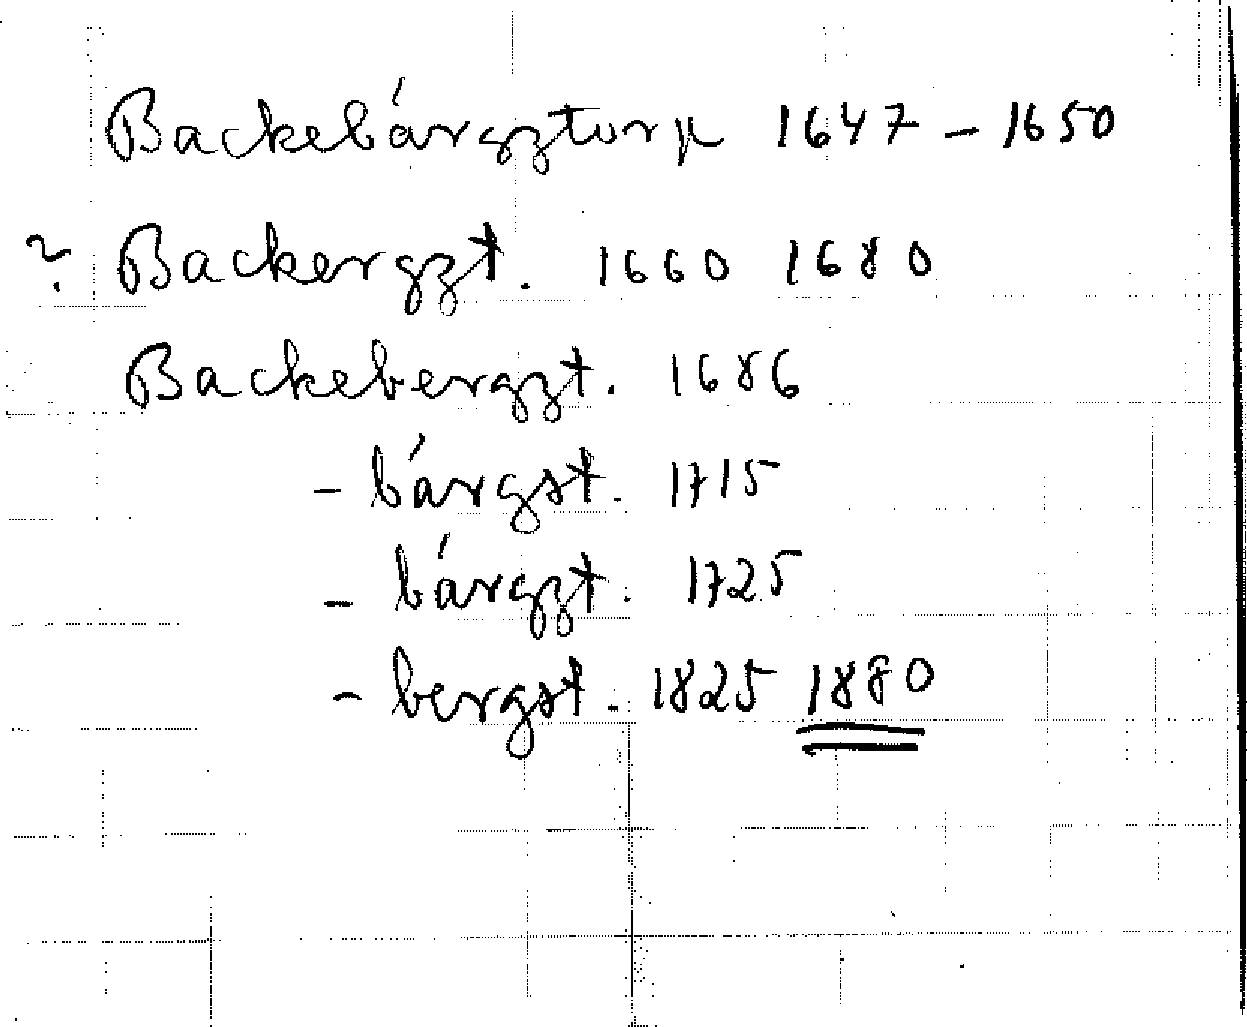 Backebárgztorp 1647 - 1650
? Backergzt. 1660 1680
Backebergzt. 1686
- bárgst. 1715
- bárgzt. 1725
- bergst. 1825 1880